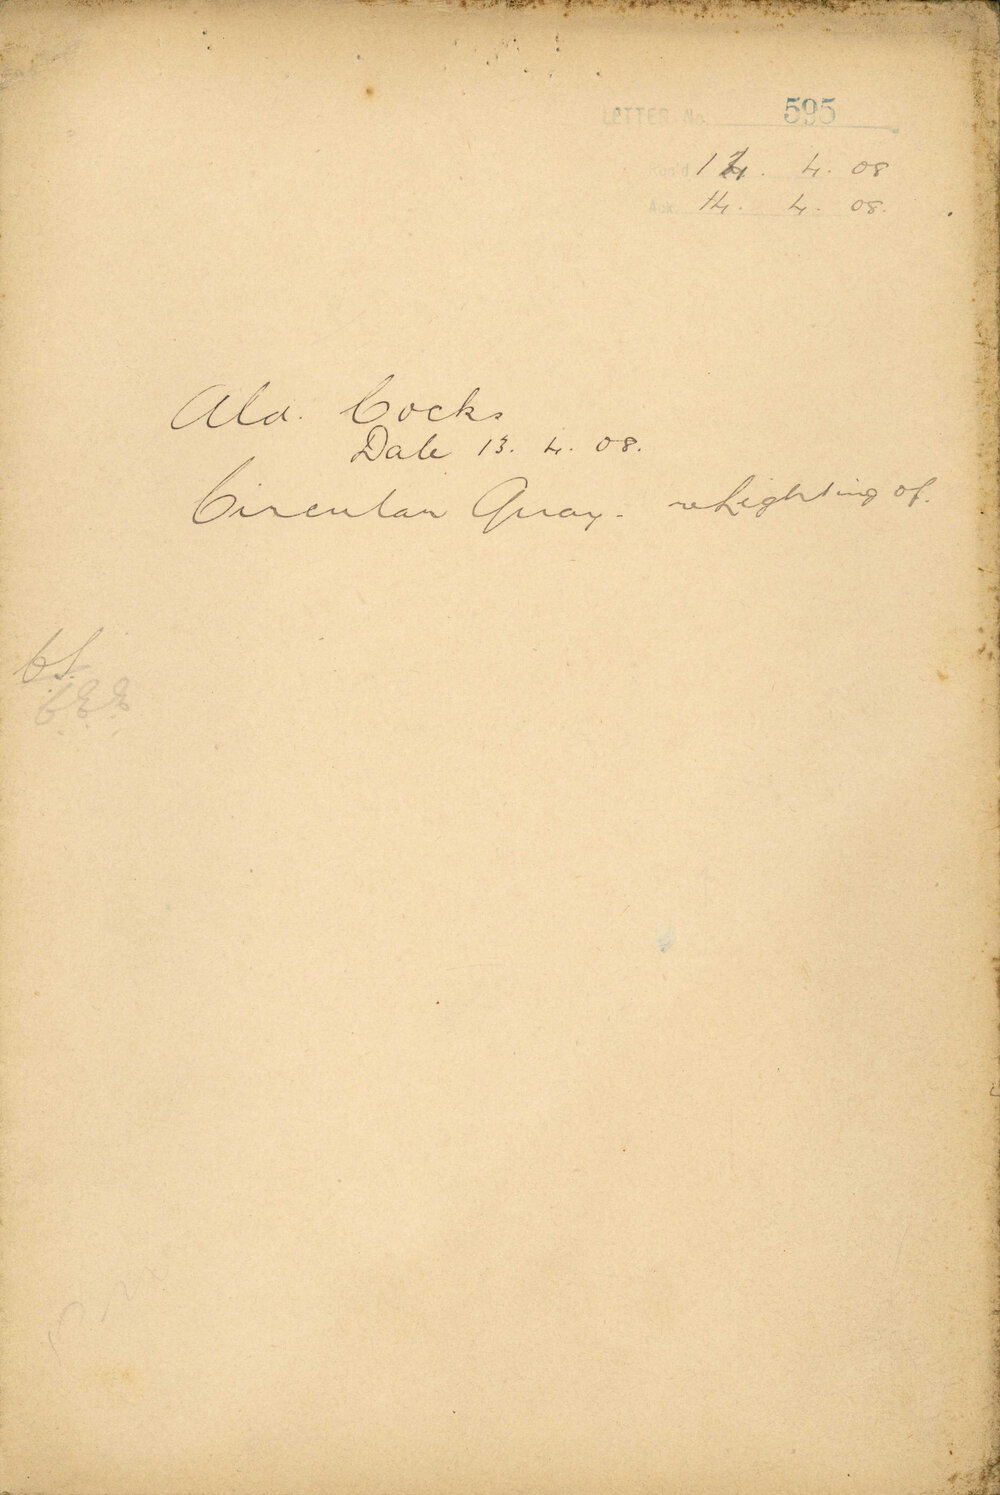 LETTER No. 595
Rec'd 14. 4. 08
Ack. 14. 4. 08.
Ald. Cocks
Date 13. 4. 08.
Circular Quay. re Lighting of.
C.S.
C.E.E.